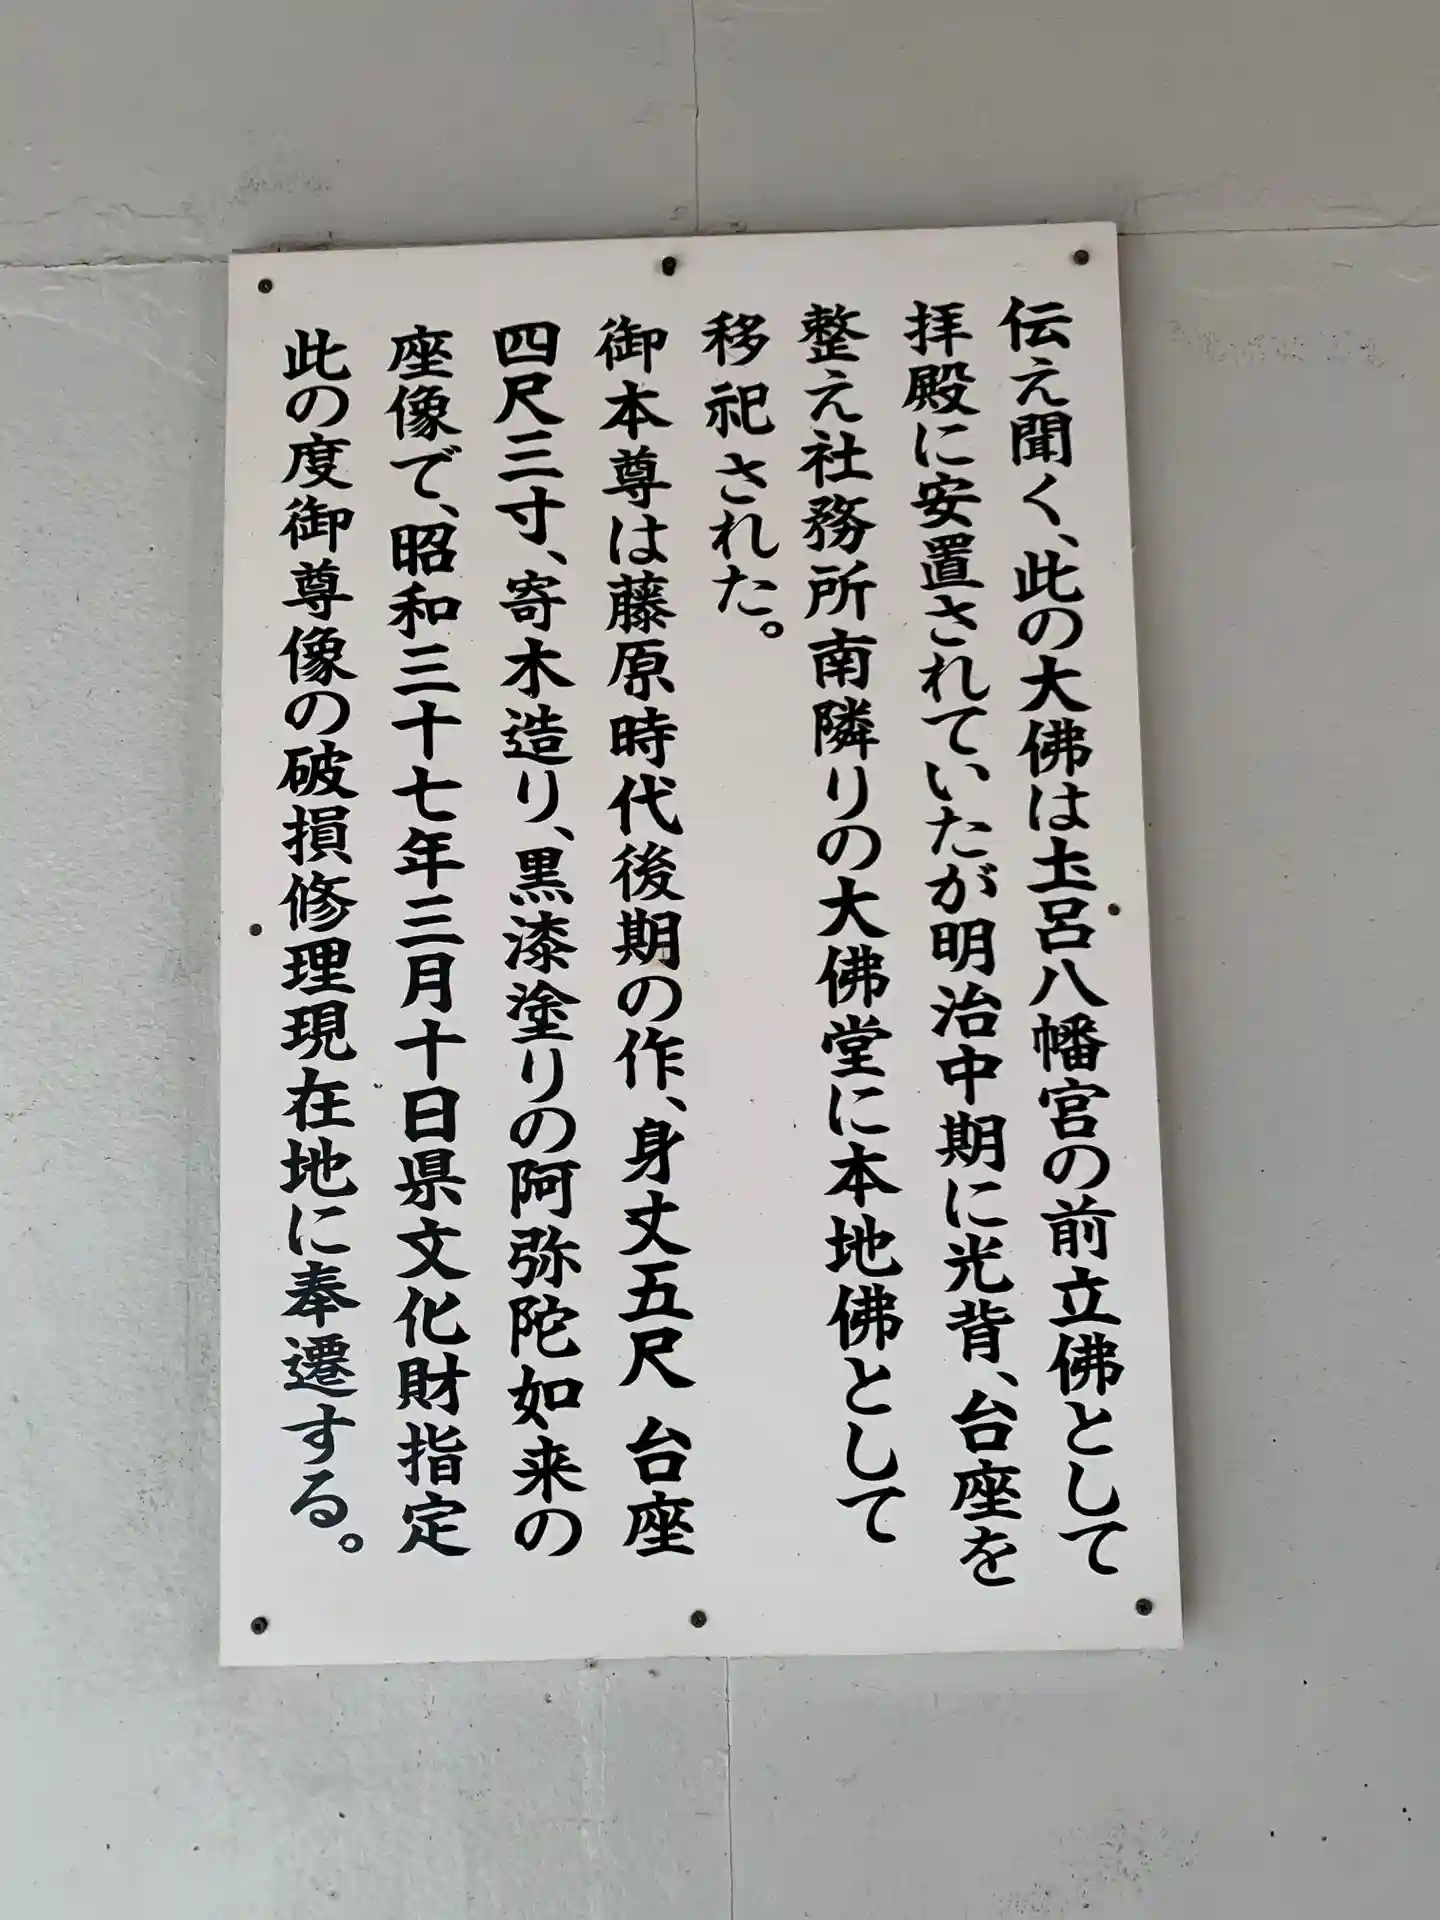 伝え聞く、此の大佛は圡呂八幡宮の前立佛として
拝殿に安置されていたが明治中期に光背、台座を
整え社務所南隣りの大佛堂に本地佛として
移祀された。
御本尊は藤原時代後期の作、身丈五尺 台座
四尺三寸、寄木造り、黒漆塗りの阿弥陀如来の
座像で、昭和三十七年三月十日県文化財指定
此の度御尊像の破損修理現在地に奉遷する。